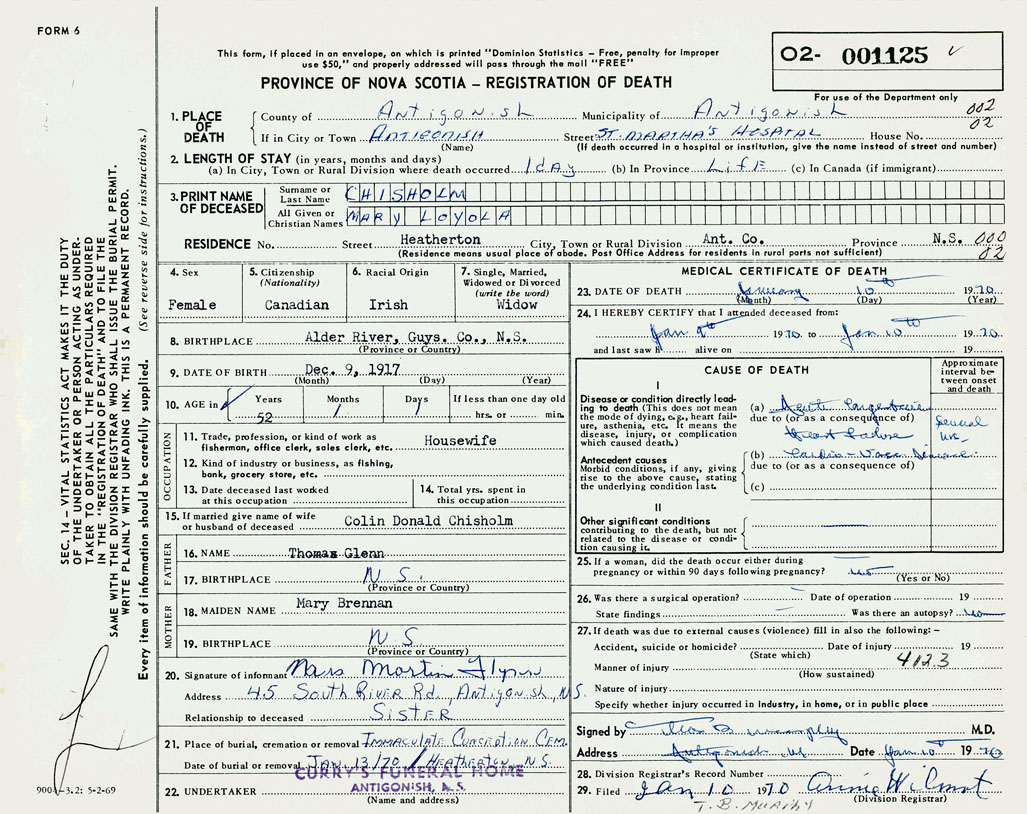 FORM 6
This form, if placed in an envelope, on which is printed "Dominion Statistics – Free, penalty for improper
use $50," and properly addressed will pass through the mail "FREE"
PROVINCE OF NOVA SCOTIA – REGISTRATION OF DEATH
O2- 001125
For use of the Department only
002
02
1. PLACE OF DEATH
County of Antigonish Municipality of Antigonish
If in City or Town ANTIGONISH Street ST. MARTHA'S HOSPITAL House No.
(Name) (If death occurred in a hospital or institution, give the name instead of street and number)
2. LENGTH OF STAY (in years, months and days)
(a) In City, Town or Rural Division where death occurred 1 day (b) In Province LifE (c) In Canada (if immigrant)
3. PRINT NAME OF DECEASED
Surname or Last Name CHISHOLM
All Given or Christian Names MARY LOYOLA
RESIDENCE No. Street Heatherton City, Town or Rural Division Ant. Co. Province N.S. 000
02
(Residence means usual place of abode. Post Office Address for residents in rural parts not sufficient)
4. Sex
Female
5. Citizenship
(Nationality)
Canadian
6. Racial Origin
Irish
7. Single, Married,
Widowed or Divorced
(write the word)
Widow
8. BIRTHPLACE Alder River, Guys. Co., N.S.
(Province or Country)
9. DATE OF BIRTH Dec. 9, 1917
(Month) (Day) (Year)
10. AGE in Years Months Days If less than one day old
52 1 1 hrs. or min.
OCCUPATION
11. Trade, profession, or kind of work as Housewife
fisherman, office clerk, sales clerk, etc.
12. Kind of industry or business, as fishing,
bank, grocery store, etc.
13. Date deceased last worked
at this occupation
14. Total yrs. spent in
this occupation
15. If married give name of wife
or husband of deceased Colin Donald Chisholm
FATHER
16. NAME Thomas Glenn
17. BIRTHPLACE N S.
(Province or Country)
MOTHER
18. MAIDEN NAME Mary Brennan
19. BIRTHPLACE N S
(Province or Country)
20. Signature of informant Mrs Martin Flynn
Address 45 South River Rd, Antigonish, N.S.
Relationship to deceased SISTER
21. Place of burial, cremation or removal IMMACULATE CONCEPTION CEM.
Date of burial or removal JAN. 13/70 / HEATHERTON N.S.
CURRY'S FUNERAL HOME
ANTIGONISH, N.S.
22. UNDERTAKER
(Name and address)
MEDICAL CERTIFICATE OF DEATH
23. DATE OF DEATH January 10th 1970
(Month) (Day) (Year)
24. I HEREBY CERTIFY that I attended deceased from:
Jan 9th 1970 to Jan 10th 1970
and last saw h alive on 19
CAUSE OF DEATH
Approximate
interval be-
tween onset
and death
I
Disease or condition directly lead-
ing to death (This does not
mean the mode of dying, e.g., heart fail-
ure, asthenia, etc. It means the
disease, injury, or complication
which caused death.)
(a) Acute Congestive
due to (or as a consequence of)
Heart Failure
Several
hrs.
Antecedent causes
Morbid conditions, if any, giving
rise to the above cause, stating
the underlying condition last.
(b) Cardio-Vasc Disease
due to (or as a consequence of)
(c)
II
Other significant conditions
contributing to the death, but not
related to the disease or condi-
tion causing it.
25. If a woman, did the death occur either during
pregnancy or within 90 days following pregnancy? no
(Yes or No)
26. Was there a surgical operation? Date of operation 19
State findings Was there an autopsy? no
27. If death was due to external causes (violence) fill in also the following: –
Accident, suicide or homicide? Date of injury 19
(State which)
412.3
Manner of injury
(How sustained)
Nature of injury
Specify whether injury occurred in industry, in home, or in public place
Signed by M.D.
Address Antigonish NS Date Jan 10th 1970
28. Division Registrar's Record Number
29. Filed Jan 10 1970 Annie Wilmot
(Division Registrar)
T. B. Murphy
SEC. 14 – VITAL STATISTICS ACT MAKES IT THE DUTY
OF THE UNDERTAKER OR PERSON ACTING AS UNDER-
TAKER TO OBTAIN ALL THE PARTICULARS REQUIRED
IN THE "REGISTRATION OF DEATH" AND TO FILE THE
SAME WITH THE DIVISION REGISTRAR WHO SHALL ISSUE THE BURIAL PERMIT.
WRITE PLAINLY WITH UNFADING INK. THIS IS A PERMANENT RECORD.
Every item of information should be carefully supplied. (See reverse side for instructions.)
900 –3.2: 5-2-69